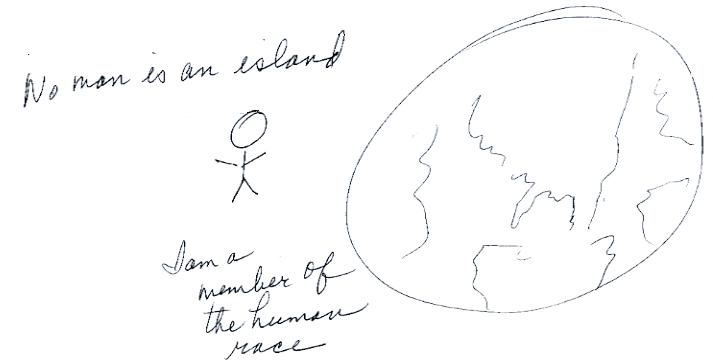 No man is an island
I am a
member of
the human
race